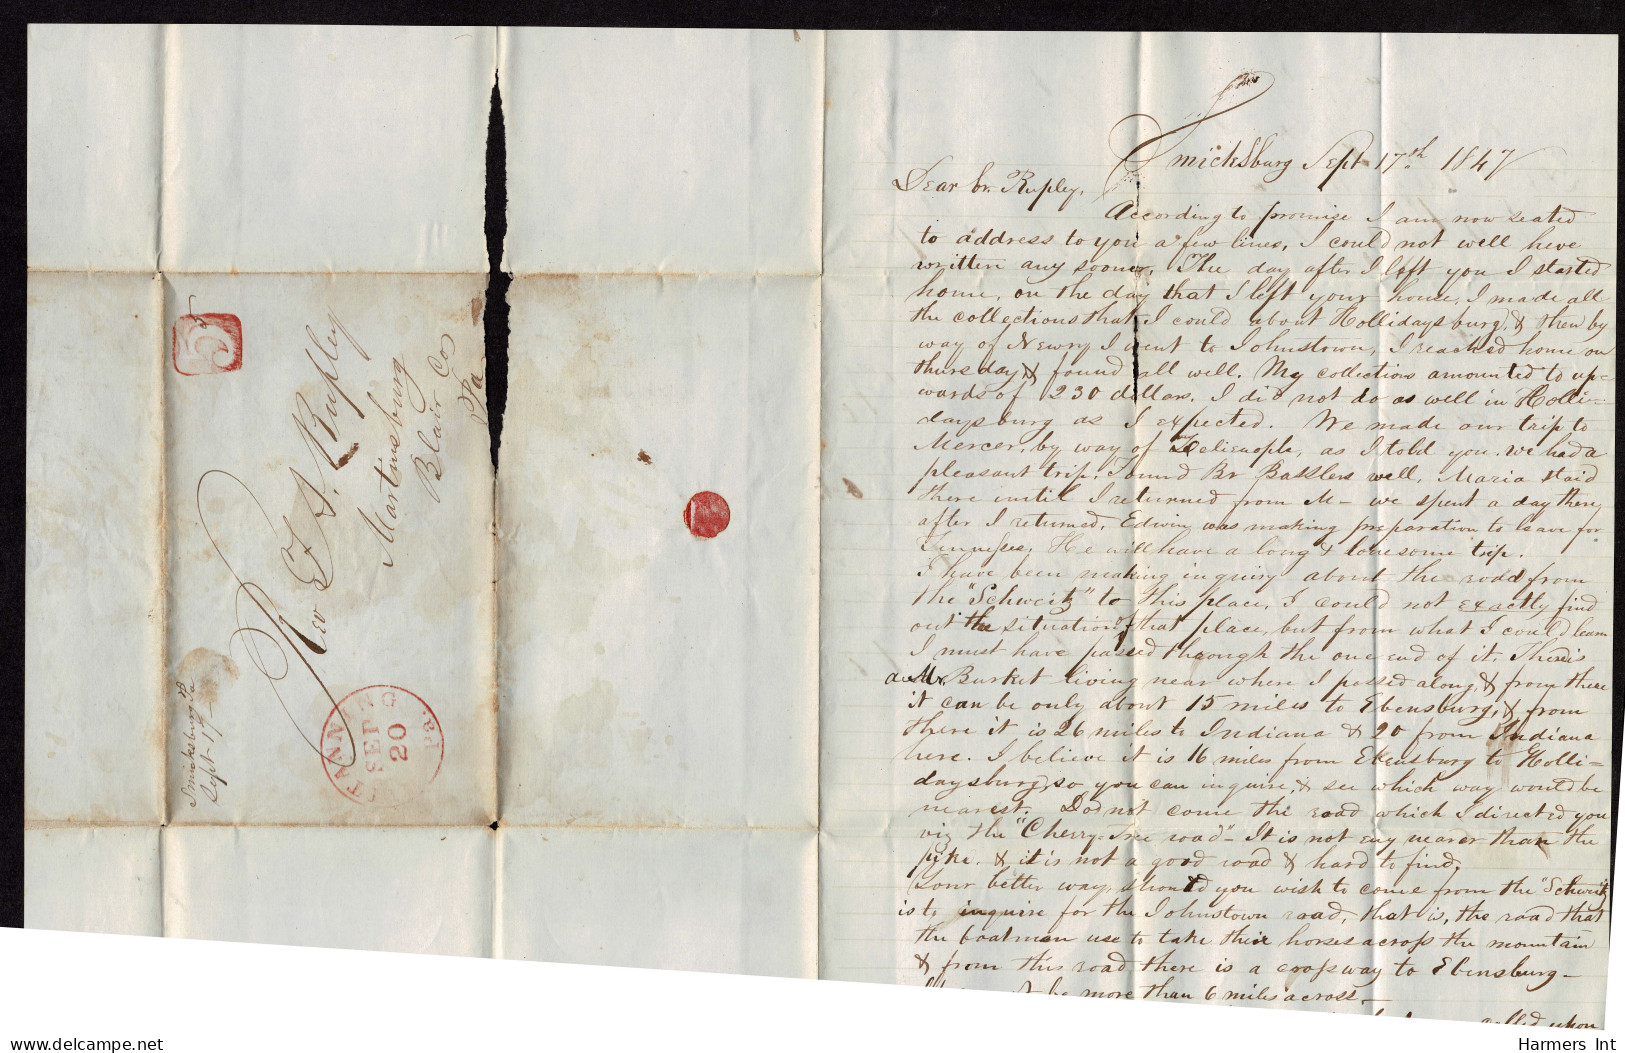 5
5
Rev F. A. Rupley
Martinsburg
Blair Co
Pa
Smicksburg Pa
Sept. 17
SEP
20
Pa.
Smicksburg Sept 17th 1847
Dear br. Rupley,
According to promise I am now seated
to address to you a few lines, I could not well have
written any sooner. The day after I left you I started
home, on the day that I left your house, I made all
the collections that I could about Hollidaysburg, & then by
way of Newry I went to Johnstown, I reached home on
thursday & found all well. My collections amounted to up=
wards of 230 dollars. I did not do as well in Holli=
daysburg as I expected. We made our trip to
Mercer, by way of Zelienople, as I told you. we had a
pleasant trip, found Br Bassler well, Maria staid
there until I returned from M— we spent a day there
after I returned, Edwin was making preparation to leave for
Tennessee, He will have a long & lonesome trip.
I have been making inquiry about the road from
the "Schweitz" to this place, I could not exactly find
out the situation of that place, but from what I could learn
I must have passed through the one end of it. There is
a Mr. Burket living near where I passed along, & from there
it can be only about 15 miles to Ebensburg, & from
there it is 26 miles to Indiana & 20 from Indiana
here. I believe it is 16 miles from Ebensburg to Holli=
daysburg, so you can inquire, & see which way would be
nearest. Do not come the road which I directed you
viz the "Cherry=tree road" - It is not any nearer than the
pike. & it is not a good road & hard to find,
Your better way, should you wish to come from the "Schweitz
is to inquire for the Johnstown road, that is, the road that
the boatmen use to take their horses across the mountain
& from this road there is a crossway to Ebensburg—
be more than 6 miles across.—
called upon
Harmers Int